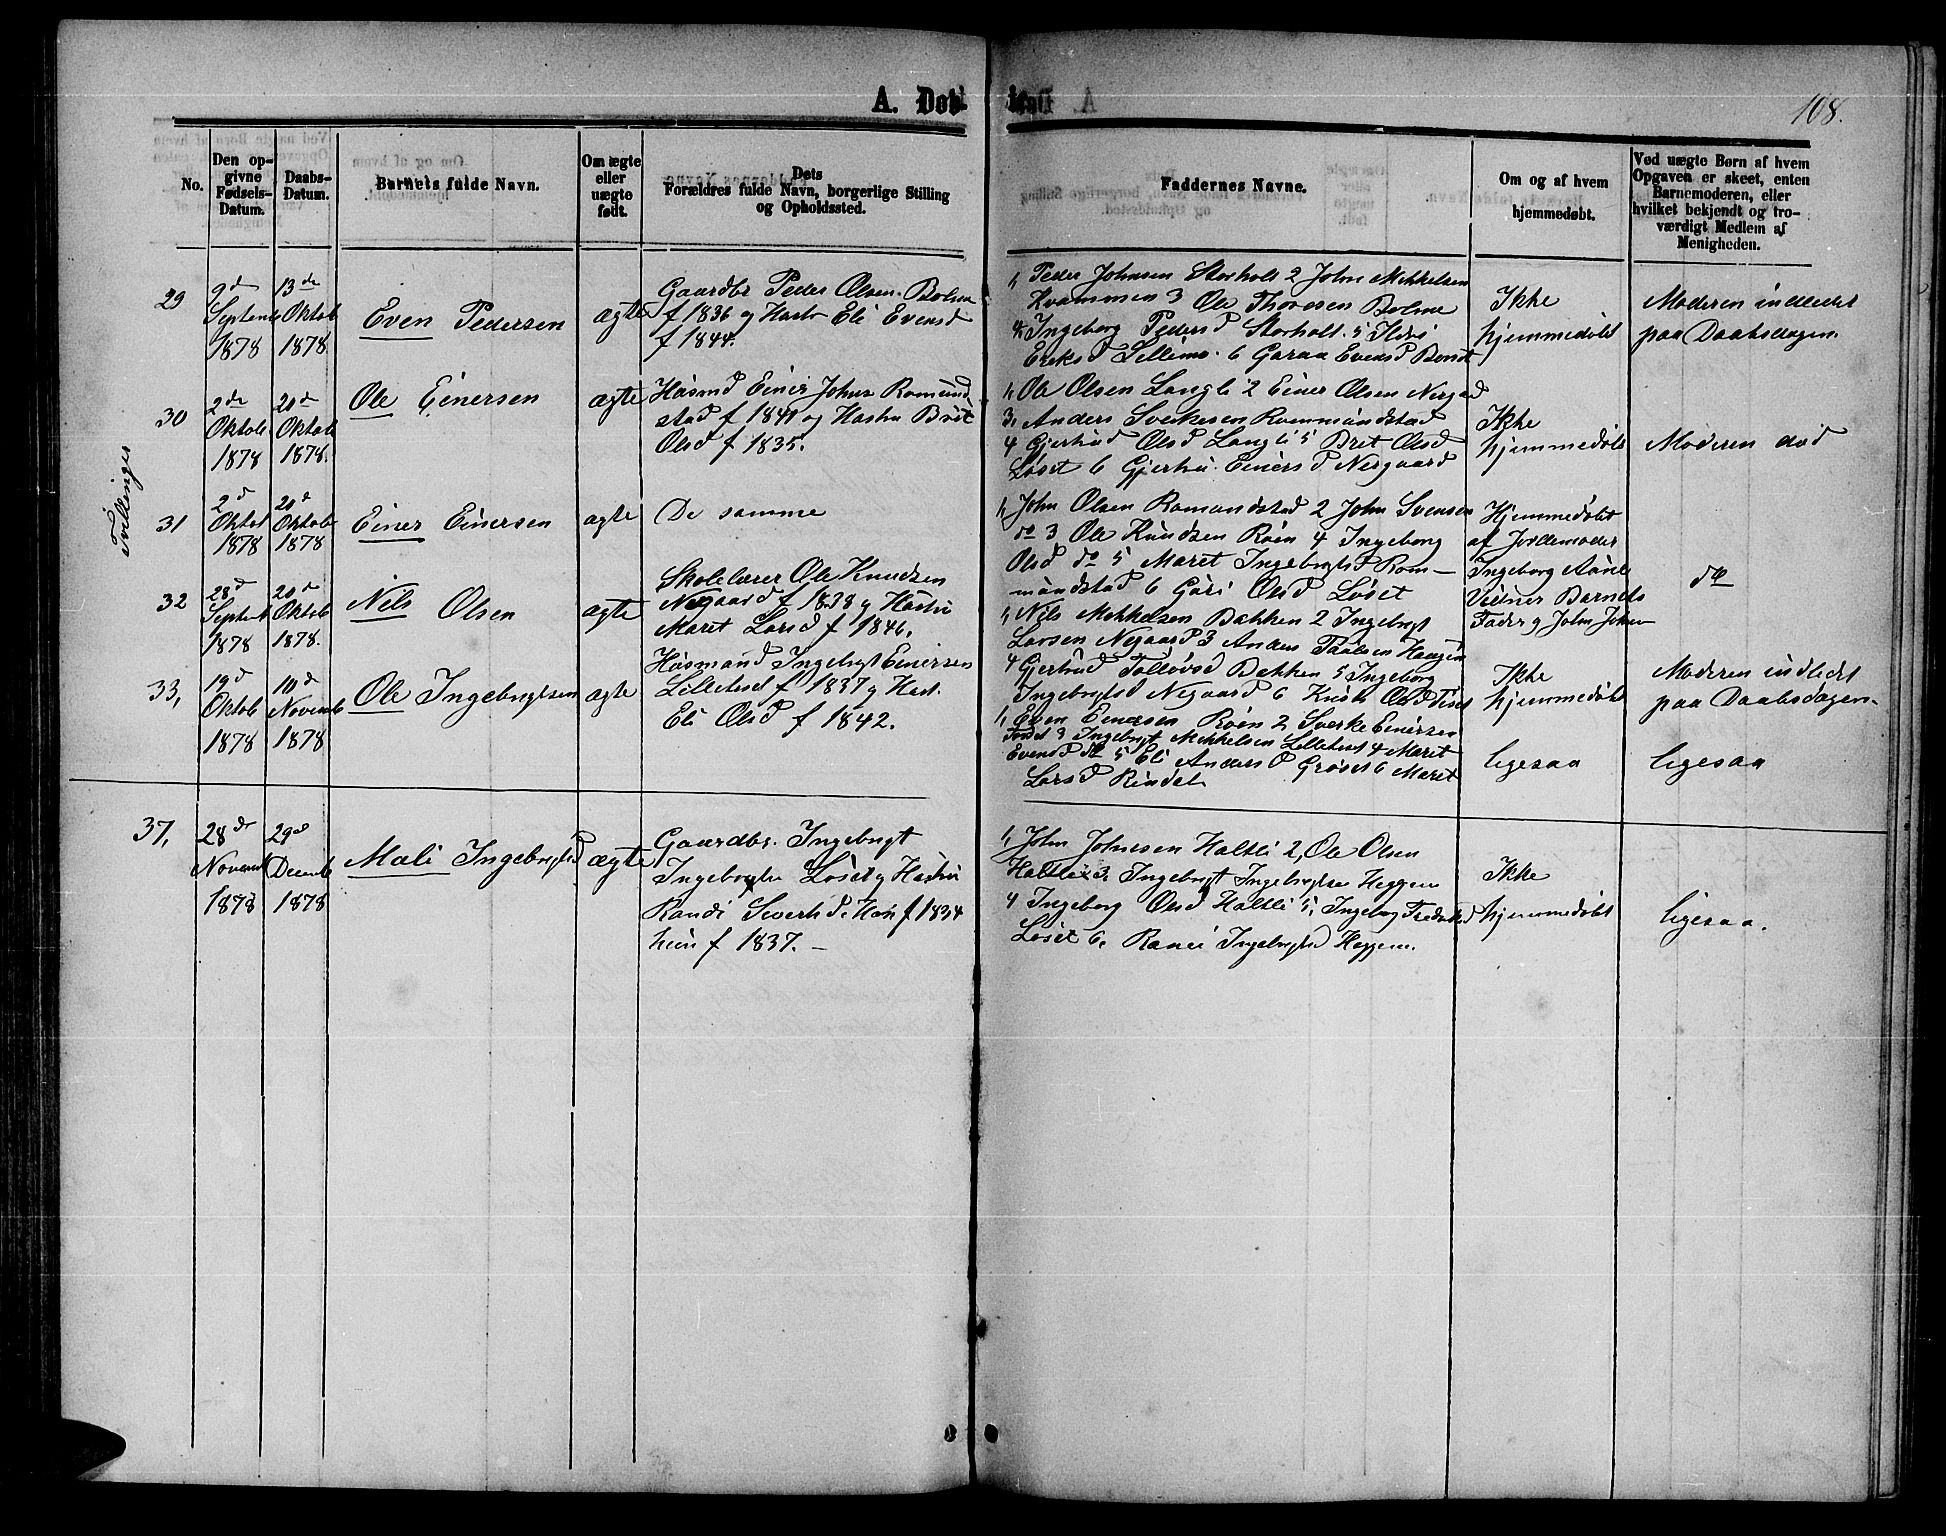 A. Døb
108.
No.
Den op-
givne
Fødsels-
Datum.
Daabs-
Datum.
Barnets fulde Navn.
Om ægte
eller
uægte
født.
Dets
Forældres fulde Navn, borgerlige Stilling
og Opholdssted.
Faddernes Navne.
Om og af hvem
hjemmedøbt.
Ved uægte Børn af hvem
Opgaven er skeet, enten
Barnemoderen, eller
hvilket bekjendt og tro-
værdigt Medlem af
Menigheden.
29
9d
Septemb
1878
13de
Oktob
1878.
Even Pedersen
ægte
Gaardbr Peder Olsen Bolme
f 1836 og Hustr Eli Evensd
f 1844.
1, Peder Johnsen Storholt 2 John Mikkelsen
Kvammen 3 Ole Thoresen Bolme
4. Ingeborg Pedersd Storholt 5 Ildri
Eriksd Lillemo 6 Guraa Evensd
Ikke
hjemmedøbt
Moderen indledet
paa Daabsdagen.
Tvillinger
30
2de
Oktob
1878
20d
Oktob
1878.
Ole Einersen
ægte
Husmd Einer Johns Romund
stad f 1841 og Hustru Brit
Olsd f 1835.
1, Ole Olsen Langli 2 Einer Olsen Nergad
3, Anders Sverkesen Rommundstad
4 Gjertrud Olsd Langli 5 Bret Olsd
Løset 6 Gjertru Einersd Nergaard
Ikke
hjemmedøbt
Moderen død
31
2d
Oktob
1878
20d
Oktob
1878
Einer Einersen
ægte
De samme
1, John Olsen Romundstad 2 John Svensen
do 3 Ole Knudsen Røen 4 Ingeborg
Olsd do 5 Maret Ingebrigtsd Rom-
mundstad 6 Guri Olsd Løset
Hjemmedøbt
af Jordemoder
Ingeborg Aane
Vidner Barnets
Fader og John Johns
do
32
28d
Septeb
1878
20d
Oktob
1878.
Nils Olsen
ægte
Skolelærer Ole Knudsen
Negaard f 1838 og Hustru
Maret Larsd f 1846.
1, Nils Mikkelsen Bakken 2 Ingebrigt
Larsen Negaard 3 Anders Paalsen Haugen
4 Gjertrud Tolløvsd Bakken 5 Ingeborg
Ingebrigtsd Negaard 6 Olsd
Ikke
hjemmedøbt
Moderen indledt
paa Daabsdagen
33,
19d
Oktob
1878
10d
Novemb
1878
Ole Ingebrigtsen
ægte
Husmand Ingebrigt Einersen
Lilletiset f 1837 og Hust.
Eli Olsd f 1842.
1, Even Einersen Røen 2 Sverke Einersen
3 Ingebrigt Mikkelsen Lilletiset 4 Maret
Evensd do 5 Eli Andersd Grøset 6 Maret
Larsd Rindal
ligesaa
ligesaa
37,
28de
Novemb
1878
29d
Decemb
1878
Mali Ingebrigtsd
ægte
Gaardbr. Ingebrigt
Ingebrigtsn Løset og Hustru
Randi Sivertsd. Han f 1834
hun f 1837. –
1, John Johnesen Haltli 2, Ole Olsen
Haltli 3. Ingebrigt Ingebrigtsen Heggem
4 Ingeborg Olsd Haltli 5, Ingeborg Fredriksd
Løset 6, Ranei Ingebrigtsd Heggem.
Ikke
hjemmedøbt
ligesaa.